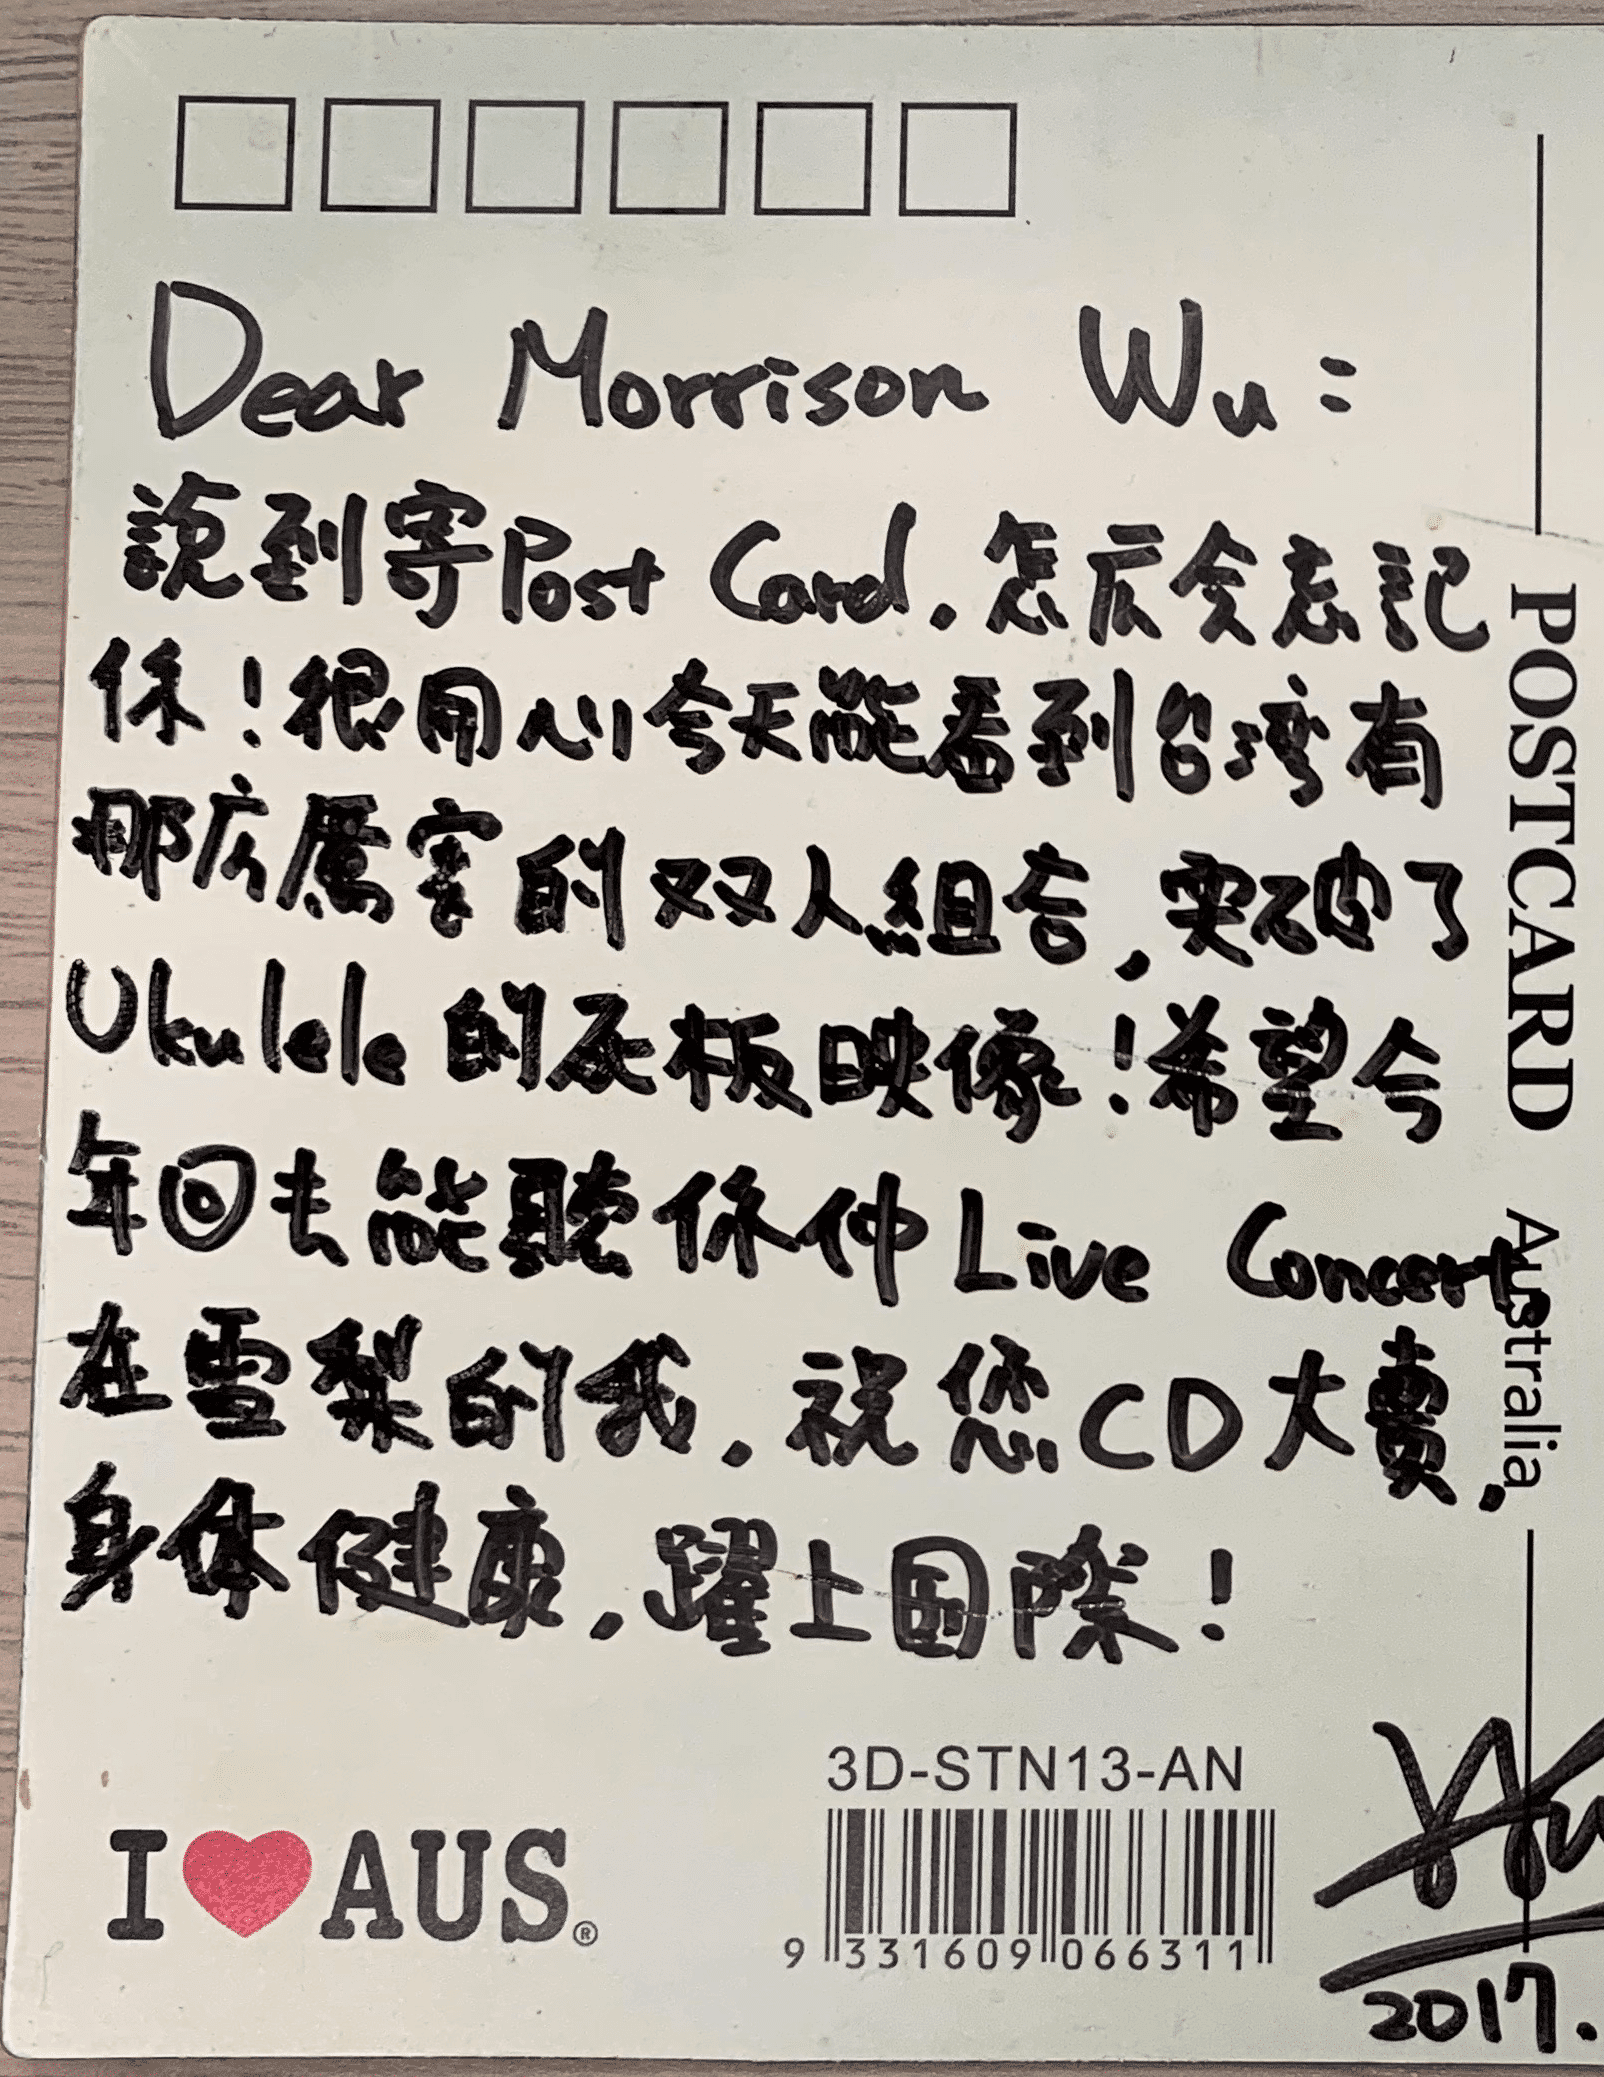 Dear Morrison Wu：
說到寄Post Card，怎広会忘記
你！很用心今天能看到台湾有
那広厲害的双人組合，突破了
Ukulele的灰板映像！希望今
年回去能聽你们Live Concert，
在雪梨的我，祝您CD大賣，
身体健康，躍上国際！
POSTCARD Australia
3D-STN13-AN
I ❤ AUS®
9 331609 066311
2017.